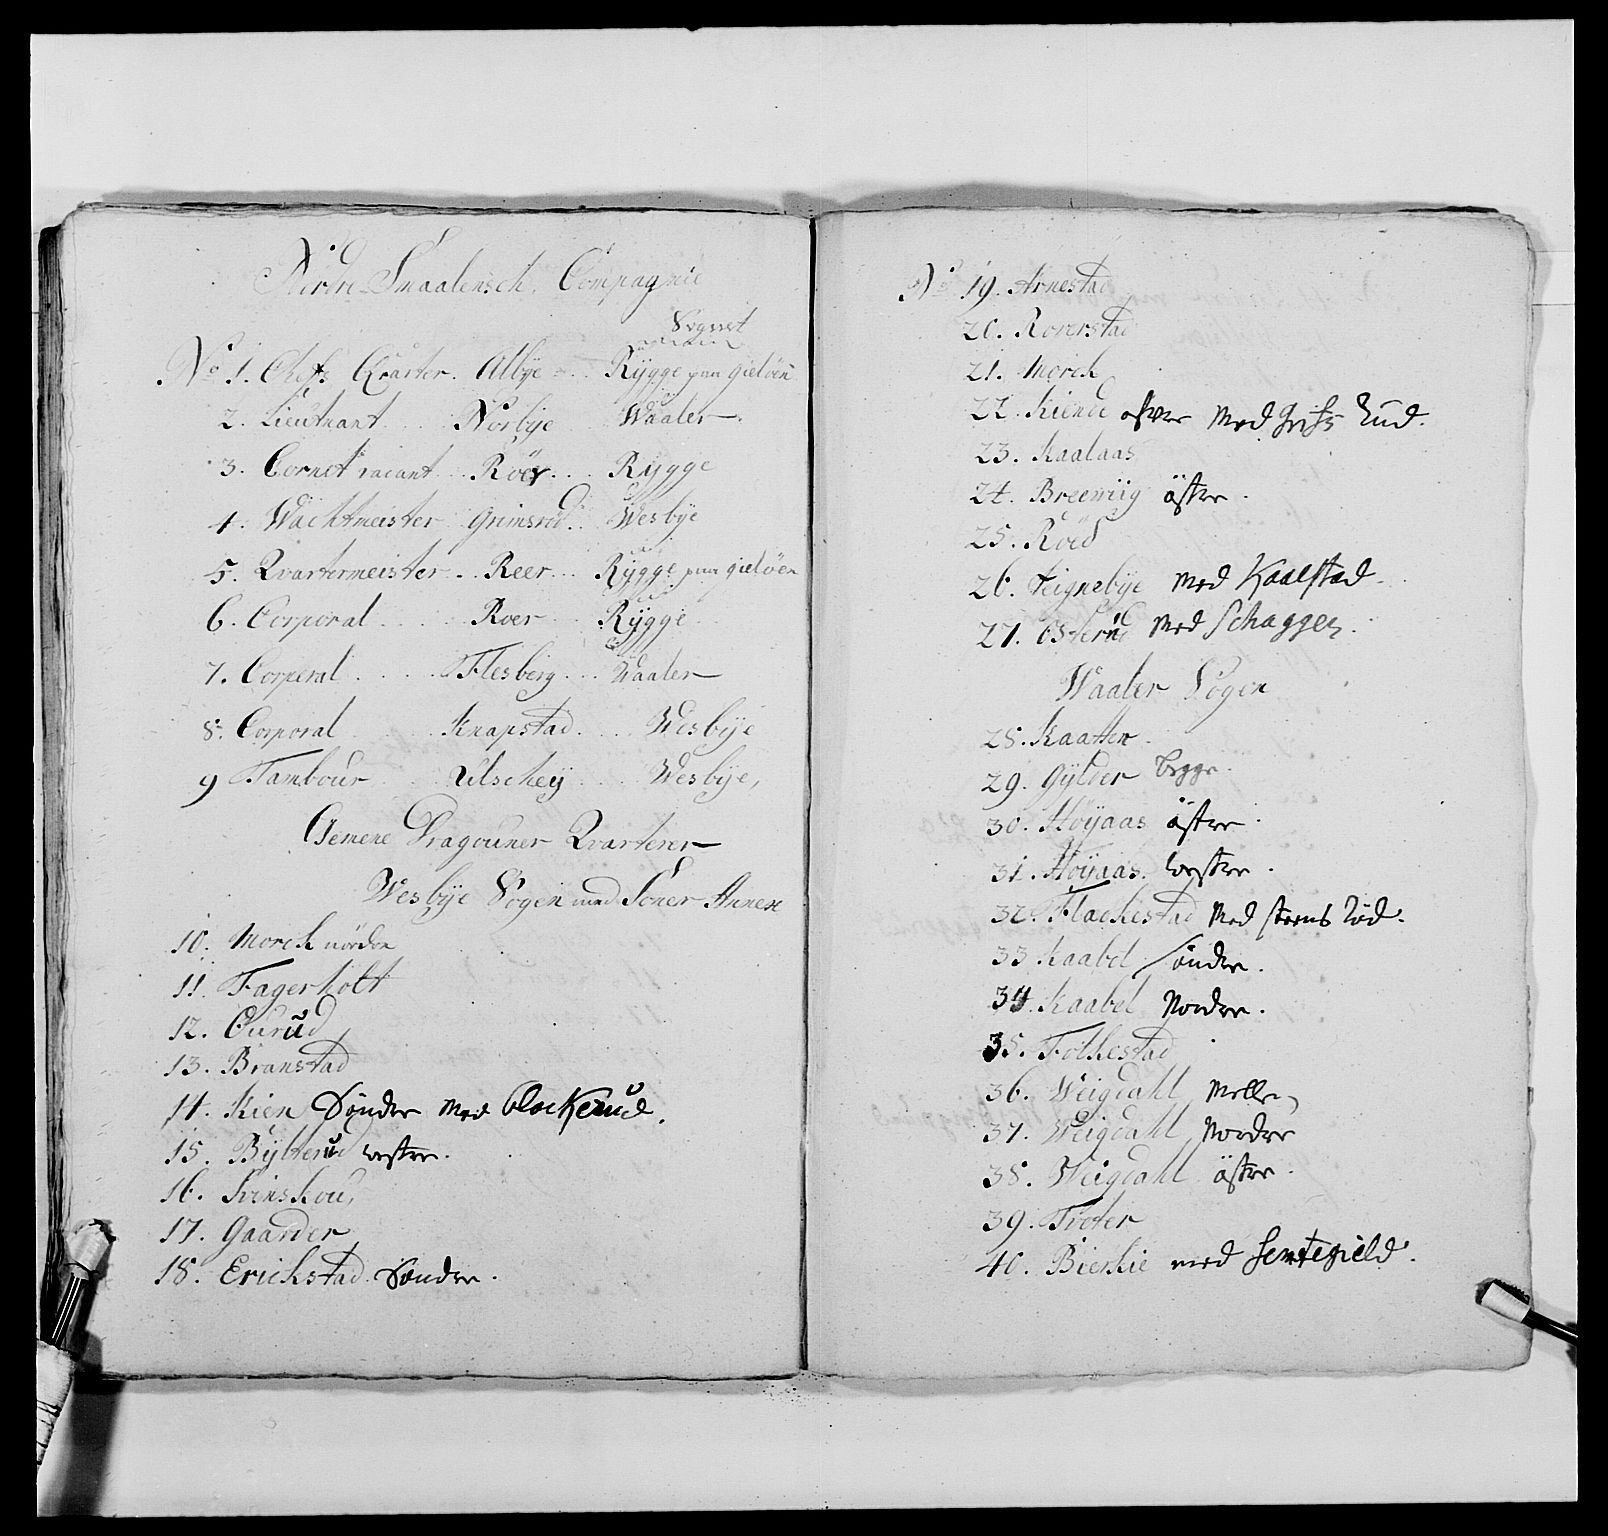 Nirdre Smaalensch. Compagnie
Sognet
No 1. Chefs Qvarter. Albye Rÿgge paa gieløen
2. Lieutnant Norbye Waaler
3. Cornet vacant Röer Rÿgge
4. Wachtmeister Grimsrød Wesbye
5. Qvartermeister Reer Rÿgge paa gieløen
6. Corporal Roer Rÿgge
7. Corporal Flesberg Waaler
8. Corporal Knapstad Wesbÿe
9 Tambour Ulschey Wesbÿe,
Gemene Dragouner Qvarterer
Wesbÿe Sogen med Soner Annex
10. Morck nørdre
11. Fagerholt
12. Ourud
13. Branstad
14. Kien Søndre Med Blockerud.
15. Bÿlterud westre.
16. Svinskou,
17. Gaarder
18. Erickstad Søndre.
No 19. Arnestad
20. Roverstad
21. Morck
22. Kiende med Rud.
23. Kaalaas
24. Breeviig östre.
25. Röed
26. Teignebÿe med Kaalstad.
27. Osterud med Schaggen.
Waaler Sogen
28. Kaatten
29. Gÿlder begge.
30. Höÿaas östre.
31. Höÿaas. westre.
32. Flackestad Med steens Rød.
33 Kaabel söndre.
34. Kaabel Nordre.
35. Folkestad
36. Weigdahl Mellem
37. Weigdahl Nordre
38. Weigdahl östre.
39. Tveter
40. Bierkie med